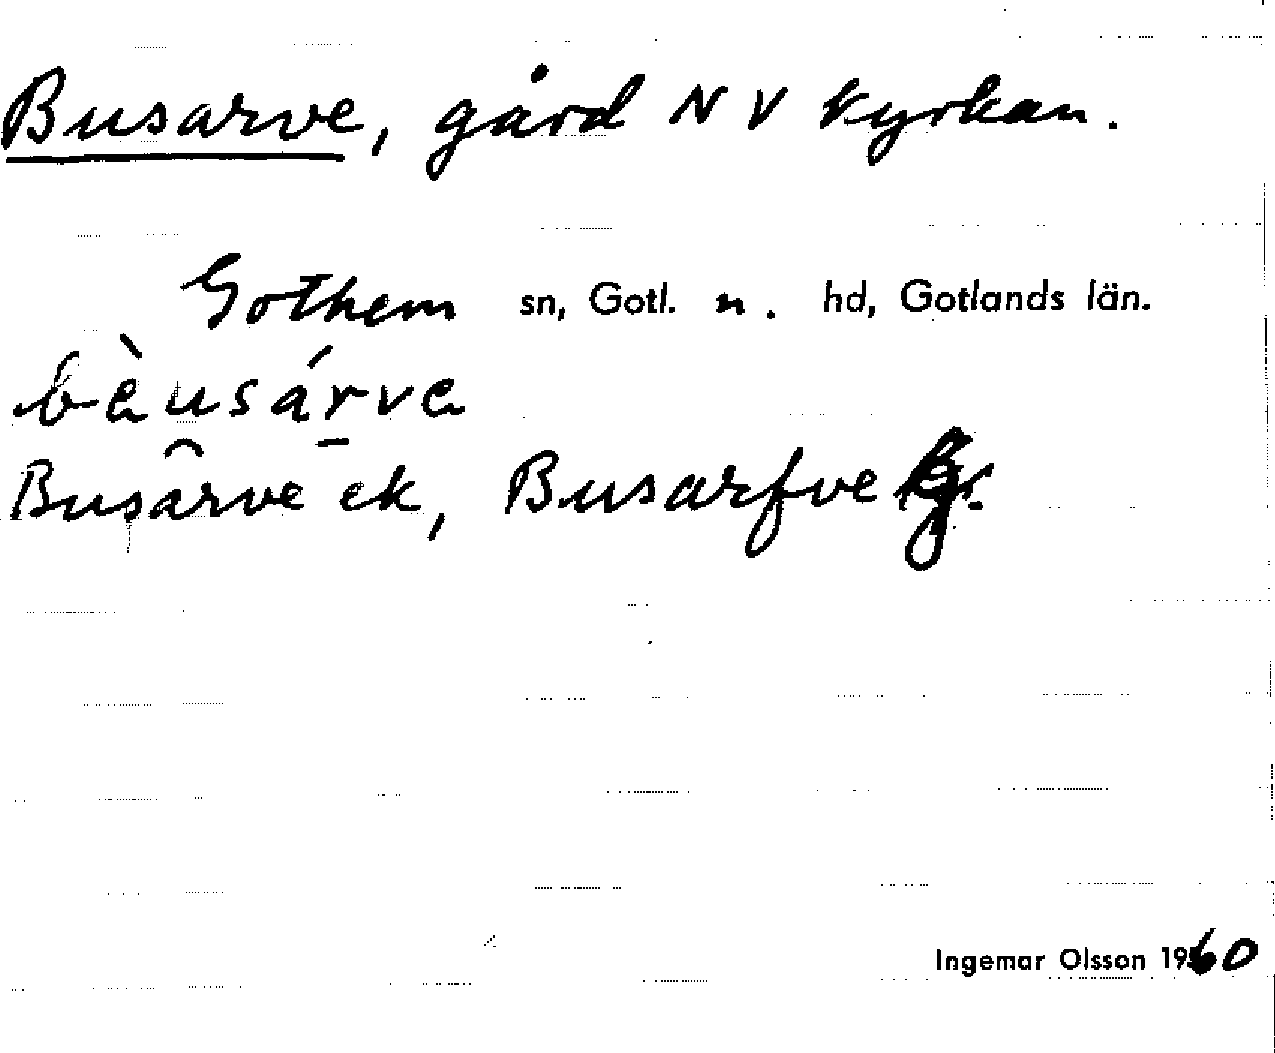 Busarve, gård N V kyrkan.
Gothem sn, Gotl. n. hd, Gotlands län.
bèusárva
Busarve ek, Busarfve
Ingemar Olsson 1960